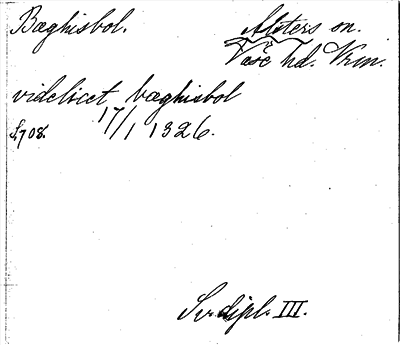 Bæghisbol. Alsters sn.
Väse hd. Vrm.
videlicet bæghisbol
S. 708. 17/1 1326.
Sv. dipl. III.